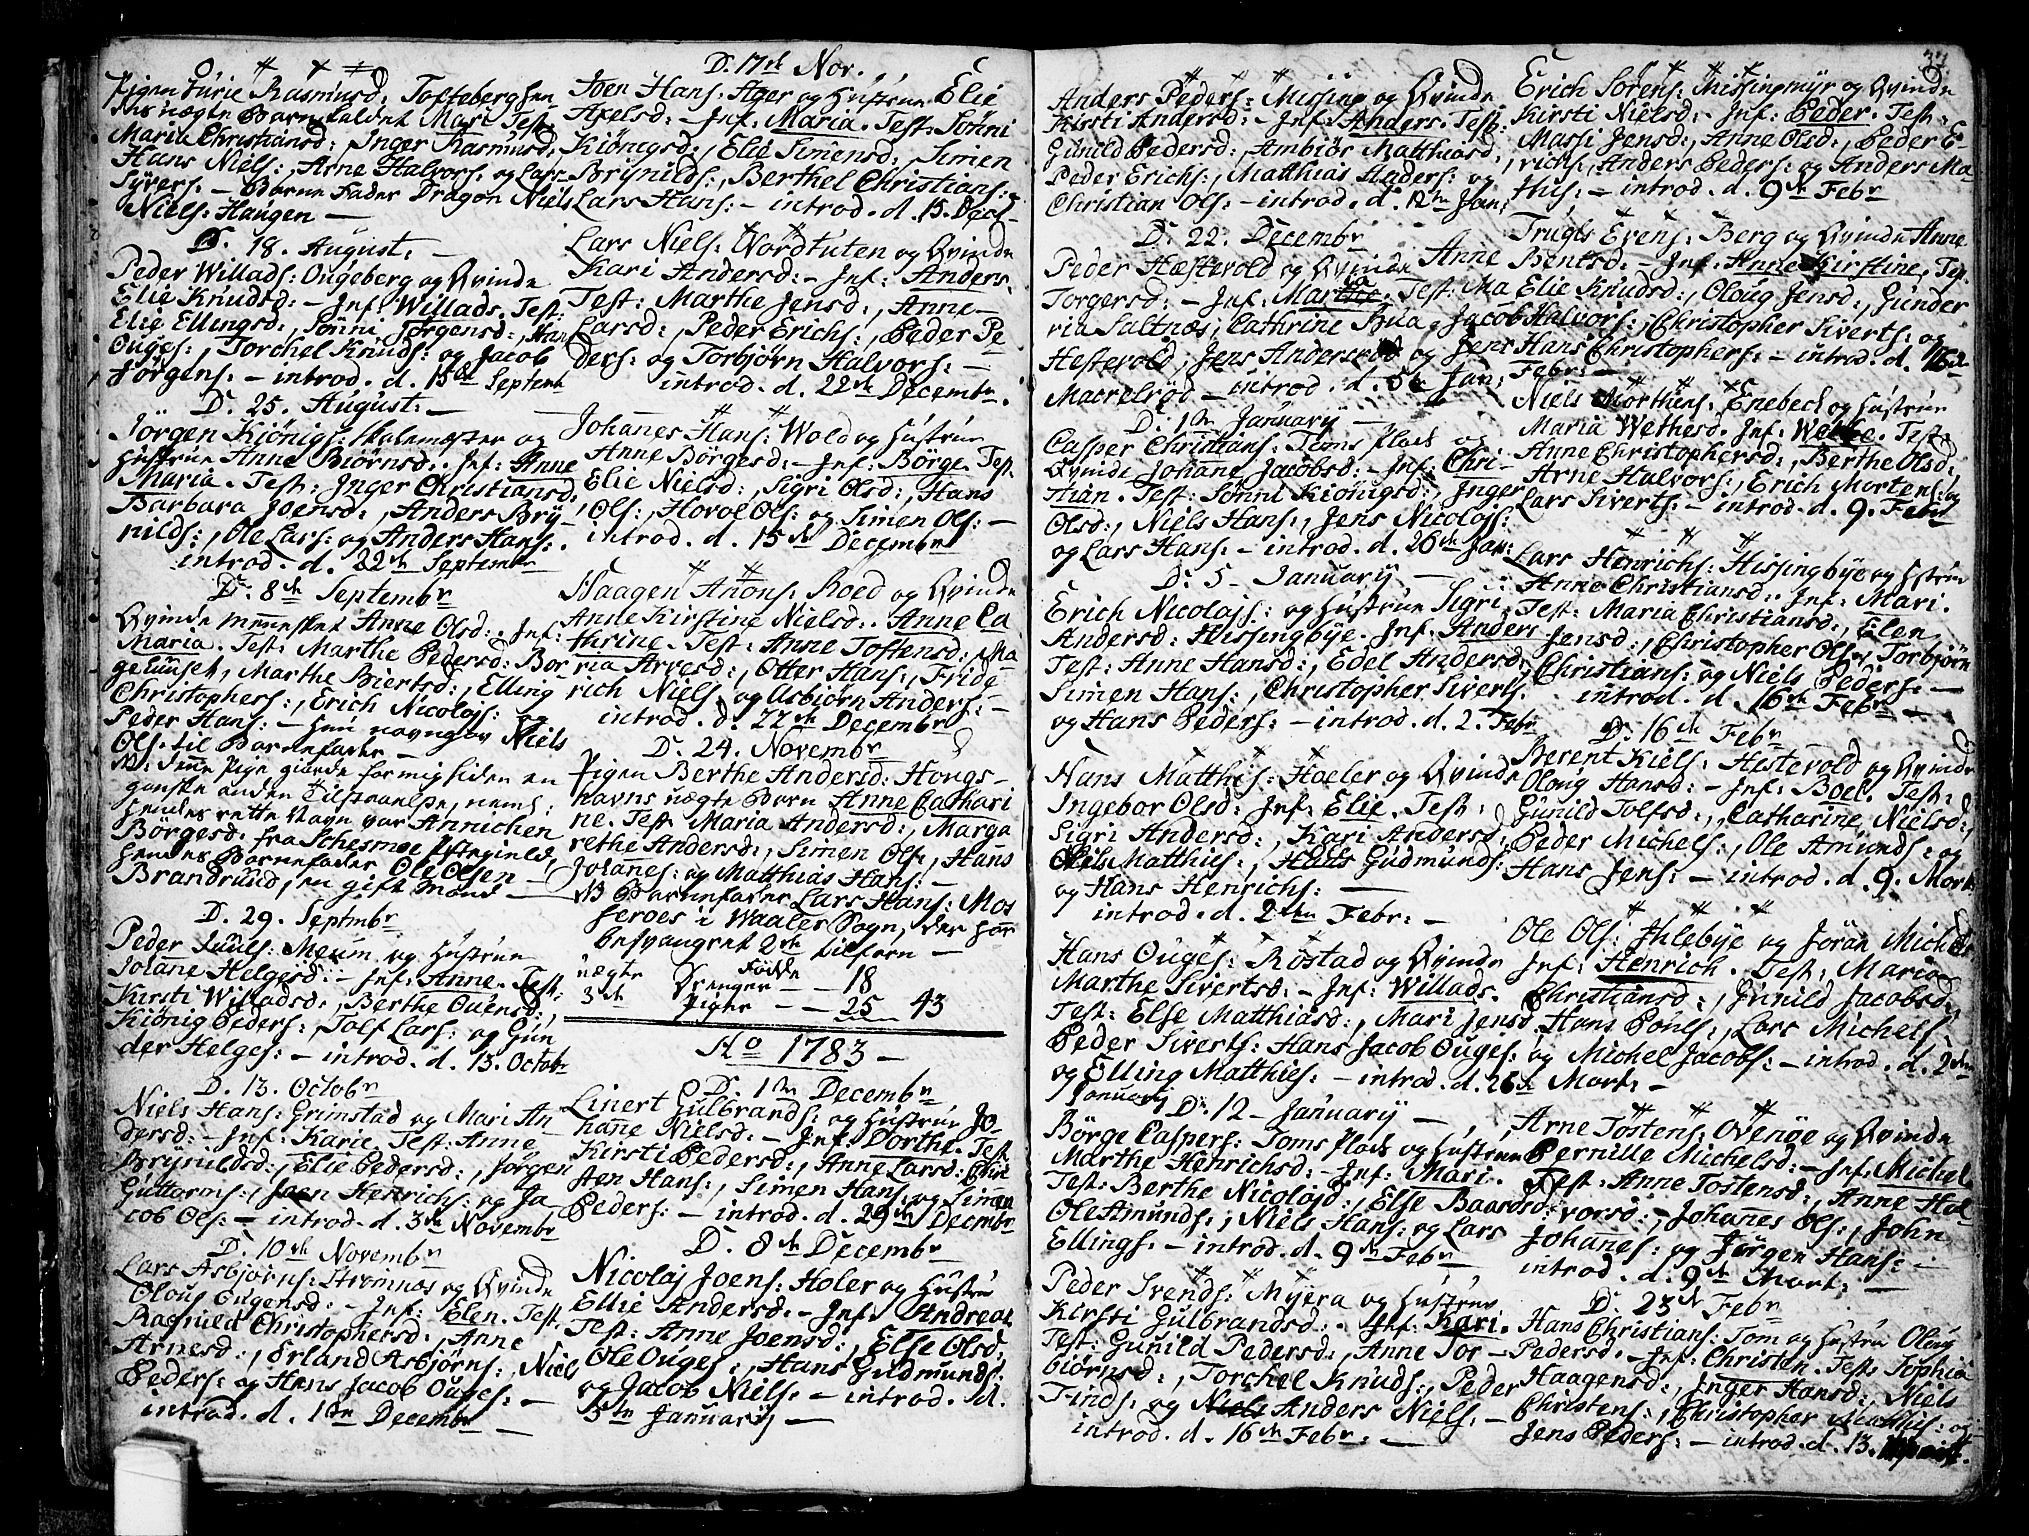 Pigen Jurie Rasmusd: Tofteberg hen
des uægte Barn kaldet Mari. Test:
Maria Christiansd:, Inger Rasmusd:
Hans Niels:, Arne Halvors: og Lars
Syvers: – Barne Fader Dragon Niels
Niels: Haugen –
D. 18. August: –
Peder Willads: Ougeberg og Qvinde
Elie Knudsd: – Inf: Willads. Test:
Elie Ellingsd:, Sønni Jørgensd:, Han
Ouges:, Torchel Knuds: og Jacob
Jørgens: – introd. d. 15de Septemb
D. 25. August: –
Jørgen Kiönigs: Skolemester og
Hustrue Anne Biørnsd:. Inf: Anne
Maria. Test: Inger Christiansd:
Barbara Joensd:, Anders Bry-
nilds:, Ole Lars: og Anders Hans:.
introd. d. 22de Septembr
D. 8de Septembr
Qvinde mennesket Anne Olsd: Inf:
Maria. Test: Marthe Pedersd: Bor
geEunset, Marthe Biertsd:, Elling
Christophers:, Erich Nicolajs:
Peder Hans: – hun navngav Niels
Ols: til Barnefader –
NB: denne Pige giorde for mig siden en
ganske anden Tilstaaelse, neml:
hendes rette Navn var Annichen
Börgesd: fra Schesmoe Præstegield,
hendes Barnefader Ole Olsen
Brandrund, en gift Mand –
D. 29. Septmbr
Peder Juuls: Meum og Hustrue
Johanne Helgesd: – Inf: Anne. Test:
Kirsti Willadsd:, Berthe Ouensd:,
Kiönig Peders:, Tolf Lars: og Gun
der Helges: – introd. d. 13. Octobr
D. 13. Octobr
Niels Hans: Grimstad og Mari An
dersd: – Inf: Karie. Test: Anne
Brynildsd:, Elie Pedersd:, Jørgen
Guttorms:, Joen Henrichs: og Ja
cob Ols: – introd. d. 3de Novembr
D. 10de Novembr
Lars Asbjørns: Strømnæs og Qvinde
Oloug Eugensd: – Inf: Elen. Test.
Ragnild Christophersd:, Anne
Arnesd:, Erland Asbjørns:, Niels
Peders: og Hans Jacob Ouges: –
introd. d. 1ste Decembr –
D. 17de Nov.
Joen Hans: Ager og Hustrue Elie
Axelsd: – Inf: Maria. Test: Sønni
Kiönigsd:, Elie Simensd:, Simen
Brynilds:, Berthel Christians:
Lars Hans: – introd. d. 15. Dec.
Lars Niels: Nordtuten og Qvinde
Kari Andersd: – Inf: Anders.
Test: Marthe Jensd:, Anne
Larsd:, Peder Erichs:, Peder Pe
ders: og Torbjørn Halvors: –
introd. d. 22de Decembr.
Johannes Hans: Wold og Hustrue
Anne Börgesd: – Inf: Börge. Test.
Elie Nielsd:, Sigri Olsd:, Hans
Ols:, Hovol Ols: og Simen Ols: –
introd. d. 15de Decembr
Haagen Arons: Roed og Qvinde
Anne Kirstine Nielsd:. Anne Ca
thrine. Test: Anne Tostensd:, Ma
ria Arvesd:, Otter Hans:, Fride
rich Niels: og Asbiørn Anders: –
introd. d. 22de Decembr
D. 24. Novembr
Pigen Berthe Andersd: Hougs-
havns uægte Barn Anne Cathari
ne. Test: Maria Andersd:, Marga
rethe Andersd:, Simen Ols:, Hans
Johannes: og Matthias Hans: –
NB Barnefader Lars Hans: Mos
seroes i Waaler Sogn, der har
besvangret 2de tilforn –
uægte Födde
3de Drenger – – 18
Piger – – 25 43
Ao 1783 –
D. 1ste Decembr
Linert Gulbrands: og Hustrue Jo-
hanne Nielsd: – Inf: Dorthe. Test.
Kirsti Pedersd:, Anne Larsd: Chri
sten Hans:, Simen Hans: og Simen
Peders: – introd. d. 29de Decembr
D. 8de Decembr
Nicolaj Joens: Holer og Hustrue
Ellie Andersd: – Inf: Andreas
Test: Anne Joensd:, Else Olsd:
Ole Ouges:, Hans Gudmunds:
og Jacob Niels: – introd. d.
5te January –
Anders Peders: Missing og Qvinde
Kirsti Andersd: – Inf: Anders. Test:
Gunild Pedersd:, Ambiør Matthiasd:,
Peder Erichs:, Matthias Anders: og
Christian Ols: – introd. d. 12te Jan:
D. 22. Decembr
Peder Hæstevold og Qvinde Anne
Torgersd: – Inf: Martha. Test: Ma
ria Saltnæs, Cathrine Bua, Jacob
Hestevold, Jens Andersrød og Jens
Macrelrød – introd. d. 5te Jan:
D. 1ste January –
Casper Christians: Toms Plads og
Qvinde Johane Jacobsd: – Inf: Chri-
stian. Test: Sønni Kiönigsd:, Inger
Olsd:, Niels Hans:, Jens Nicolajs:
og Lars Hans: – introd. d. 26de Jan:
D. 5 – January –
Erich Nicolajs: og Hustrue Sigri
Andersd: Hissingbye. Inf: Anders
Test: Anne Hansd:, Edel Andersd:
Simen Hans:, Christopher Siverts:
og Hans Peders: – introd. d. 2. Febr
Hans Matthis: Hoeler og Qvinde
Ingebor Olsd: Inf: Elie. Test:
Sigri Andersd:, Kari Andersd:
Niels Matthies:, Hans Gudmunds:
og Hans Henrichs: –
introd. d. 2den Febr: –
Hans Ouges: Rostad og Qvinde
Marthe Sivertsd: – Inf: Willads.
Test: Else Matthiasd:, Mari Jensd
Peder Siverts: Hans Jacob Ouges:
og Elling Matthies: – introd. d. 26de
January
D. 12 – January –
Börge Caspers: Toms Plads og Hustrue
Marthe Henrichsd: – Inf: Mari.
Test: Berthe Nicolajsd:, Else Baarsd:
Ole Amunds:, Niels Hans: og Lars
Ellings: – introd. d. 9de Febr –
Peder Svends: Myera og Hustrue
Kirsti Gulbrandsd:. Inf: Kari.
Test: Gunild Pedersd:, Anne Tor-
biørnsd:, Torchel Knuds:, Peder
Finds: og Anders Niels: –
introd. d. 16de Febr: –
Erich Sørens: Missingmyr og Qvinde
Kirsti Nielsd: – Inf: Peder. Test.
Massi Jensd:, Anne Olsd:, Peder E-
richs:, Anders Peders: og Anders Ma-
this: – introd. d. 9de Febr
Trugls Evens: Berg og Qvinde Anne
Bentsd: – Inf: Anne Kirstine. Test
Elie Knudsd:, Oloug Jensd:, Gunder
Halvors:, Christopher Siverts: og
Hans Christophers: – introd. d. 16de
Febr: –
Niels Morthens: Enebech og Hustrue
Maria Wethesd. Inf: Wethe. Test:
Anne Christophersd:, Berthe Olsd:
Arne Halvors:, Erich Mortens: og
Lars Siverts: – introd. d. 9. Febr
Lars Henrichs: Hissingbye og Hustrue
Anne Christiansd:. Inf: Mari.
Test: Maria Christiansd:, Elen
Jensd:, Christopher Ols:, Torbjørn
Christians: og Niels Peders: –
introd. d 16de Febr –
D. 16de Febr
Berent Kiels: Hestevold og Qvinde
Oloug Hansd: – Inf: Boel. Test:
Gunild Tolfsd:, Catharine Nielsd:,
Peder Michels:, Ole Amunds: og
Hans Jens: – introd. d. 9. Mart
Ole Ols: Ihlebye og Jöran Michelsd
Inf: Henrich. Test: Maria
Christiansd:, Gunild Jacobsd:
Hans Povels:, Lars Michels:
og Michel Jacobs: – introd. d. 2den
Mart: –
Arne Tostens: Ovenöe og Qvinde
Pernille Michelsd: – Inf: Michel
Test: Anne Tostensd:, Anne Hal-
vorsd: – Johannes Ols:, John
Johanes: og Jørgen Hans: –
introd. d. 9de Mart: –
D. 23de Febr
Hans Christians: Tom og Hustrue Oloug
Pedersd. – Inf: Christen. Test: Sophia
Haagensd:, Inger Hansd:, Niels
Christens:, Christopher Matthis: og
Jens Peders: – introd. d. 13.